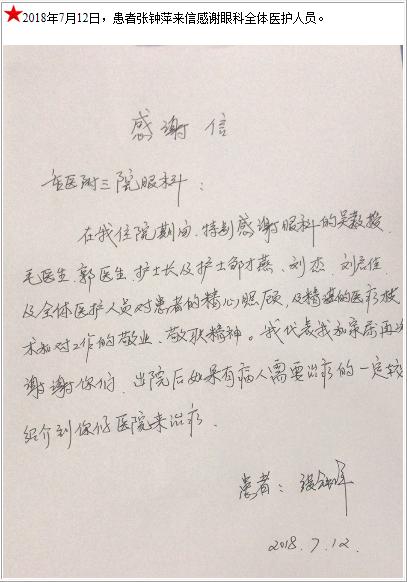 ★2018年7月12日，患者张钟萍来信感谢眼科全体医护人员。
感谢信
重医附三院眼科：
在我住院期间，特别感谢眼科的吴教授、
毛医生、郭医生、护士长及护士邹才燕、刘杰、刘启佳
及全体医护人员对患者的精心照顾，及精湛的医疗技
术和对工作的敬业、敬职精神。我代表我和家属再次
谢谢你们，出院后如果有病人需要治疗的一定
绍介到你们医院来治疗。
患者：张钟萍
2018.7.12.